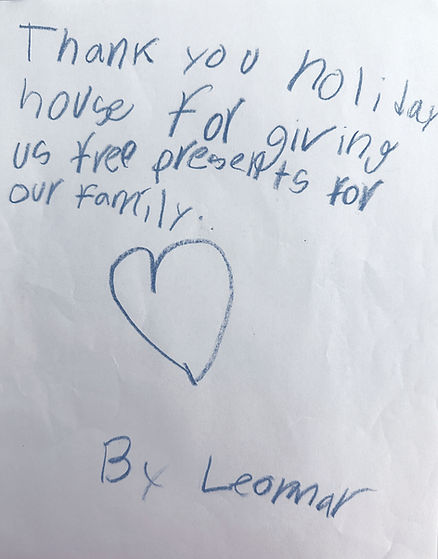 Thank you holiday
house for giving
us free presents for
our family..
By Leomar